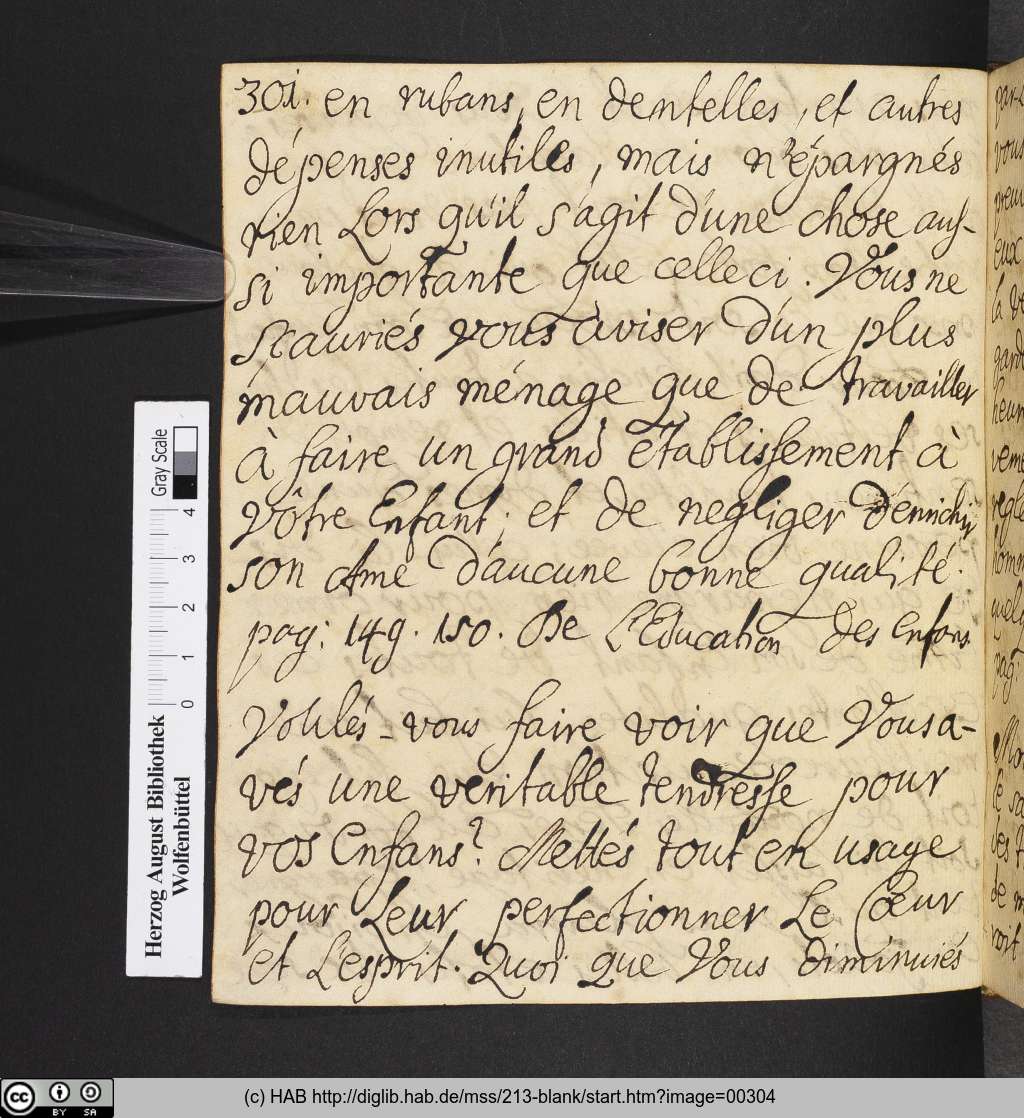 301. en rubans, en dentelles, et autres
dépenses inutiles, mais n'épargnés
rien Lors qu'il s'agit d'une chose aus-
si importante que celle ci. Vous ne
sçauriés vous aviser d'un plus
mauvais ménage que de travailler
à faire un grand établissement à
vôtre Enfant; et de negliger d'enrichir
son Ame d'aucune bonne qualité.
pag: 149. 150. De L'Education des Enfans.
Voulés-vous faire voir que Vous a-
vés une veritable tendresse pour
vos Enfans? Mettés tout en usage
pour Leur perfectionner Le Cœur
et L'esprit. Quoi que Vous diminuiés
vous
eux
Gray Scale
4
3
2
1
0
Herzog August Bibliothek
Wolfenbüttel
cc BY SA
(c) HAB http://diglib.hab.de/mss/213-blank/start.htm?image=00304